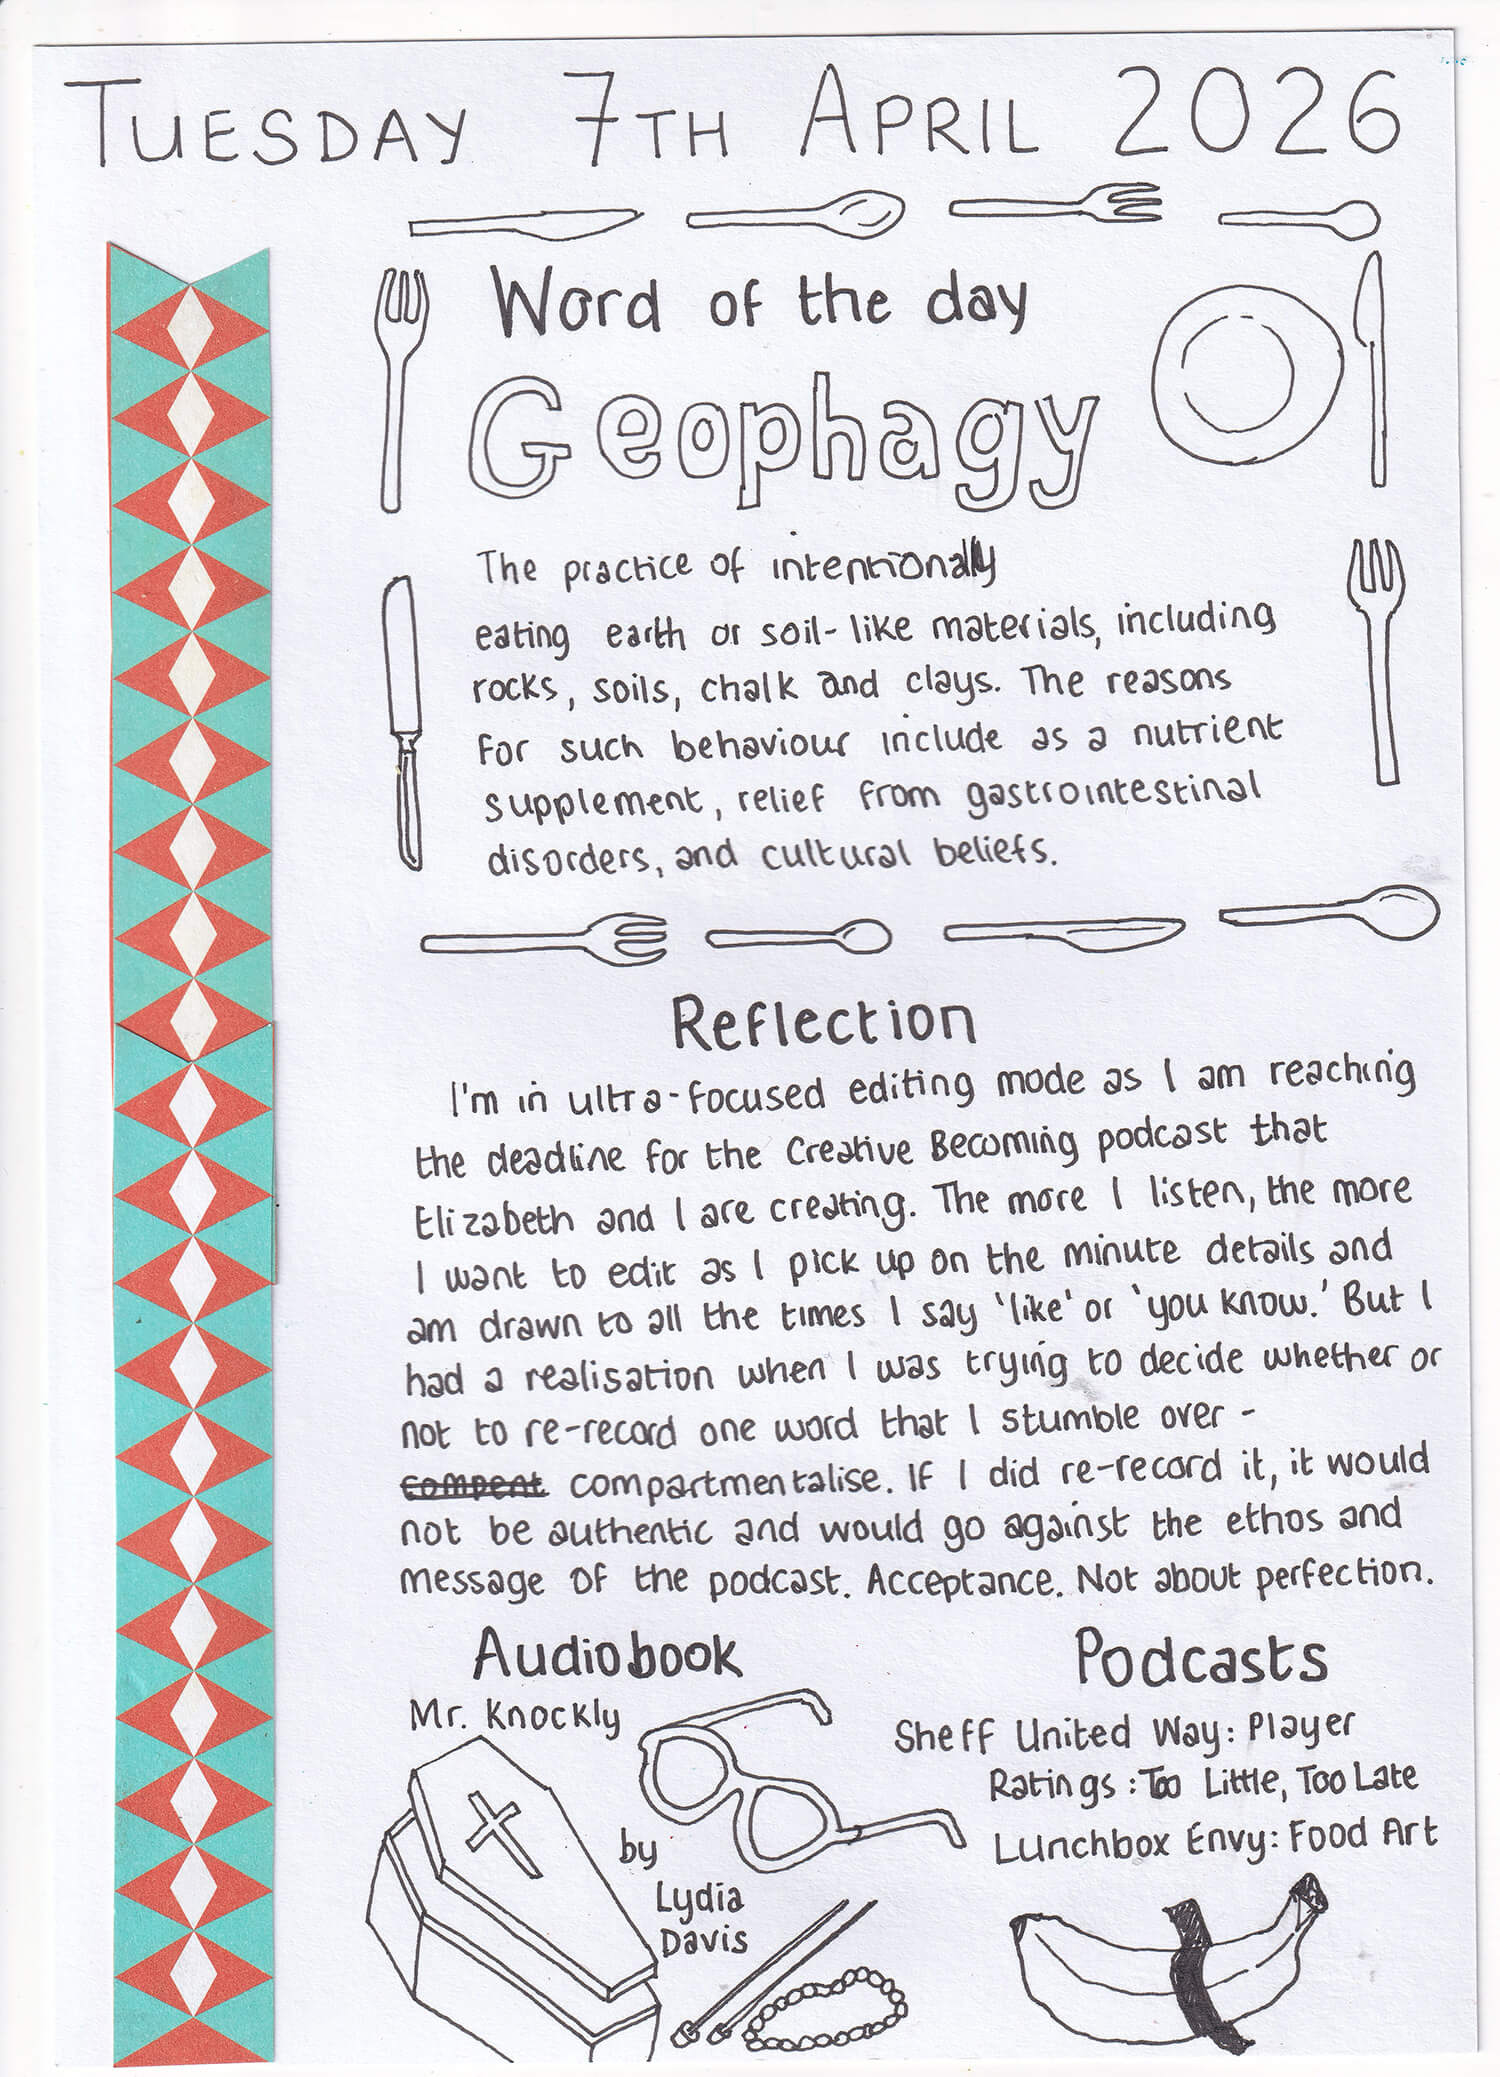 TUESDAY 7TH APRIL 2026
Word of the day
Geophagy
The practice of intentionally
eating earth or soil-like materials, including
rocks, soils, chalk and clays. The reasons
for such behaviour include as a nutrient
supplement, relief from gastrointestinal
disorders, and cultural beliefs.
Reflection
I'm in ultra-focused editing mode as I am reaching
the deadline for the Creative Becoming podcast that
Elizabeth and I are creating. The more I listen, the more
I want to edit as I pick up on the minute details and
am drawn to all the times I say 'like' or 'you know.' But I
had a realisation when I was trying to decide whether or
not to re-record one word that I stumble over -
compent compartmentalise. If I did re-record it, it would
not be authentic and would go against the ethos and
message of the podcast. Acceptance. Not about perfection.
Audiobook
Mr. Knockly
by
Lydia
Davis
Podcasts
Sheff United Way: Player
Ratings: Too Little, Too Late
Lunchbox Envy: Food Art